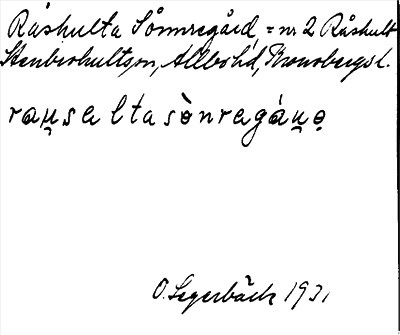 Råshulta Sönnregård, = nr 2 Råshult
Stenbrohults sn, Allbo hd, Kronobergs l.
rau̯sa lta sònragáu̯o̞
O. Segerbäck 1931